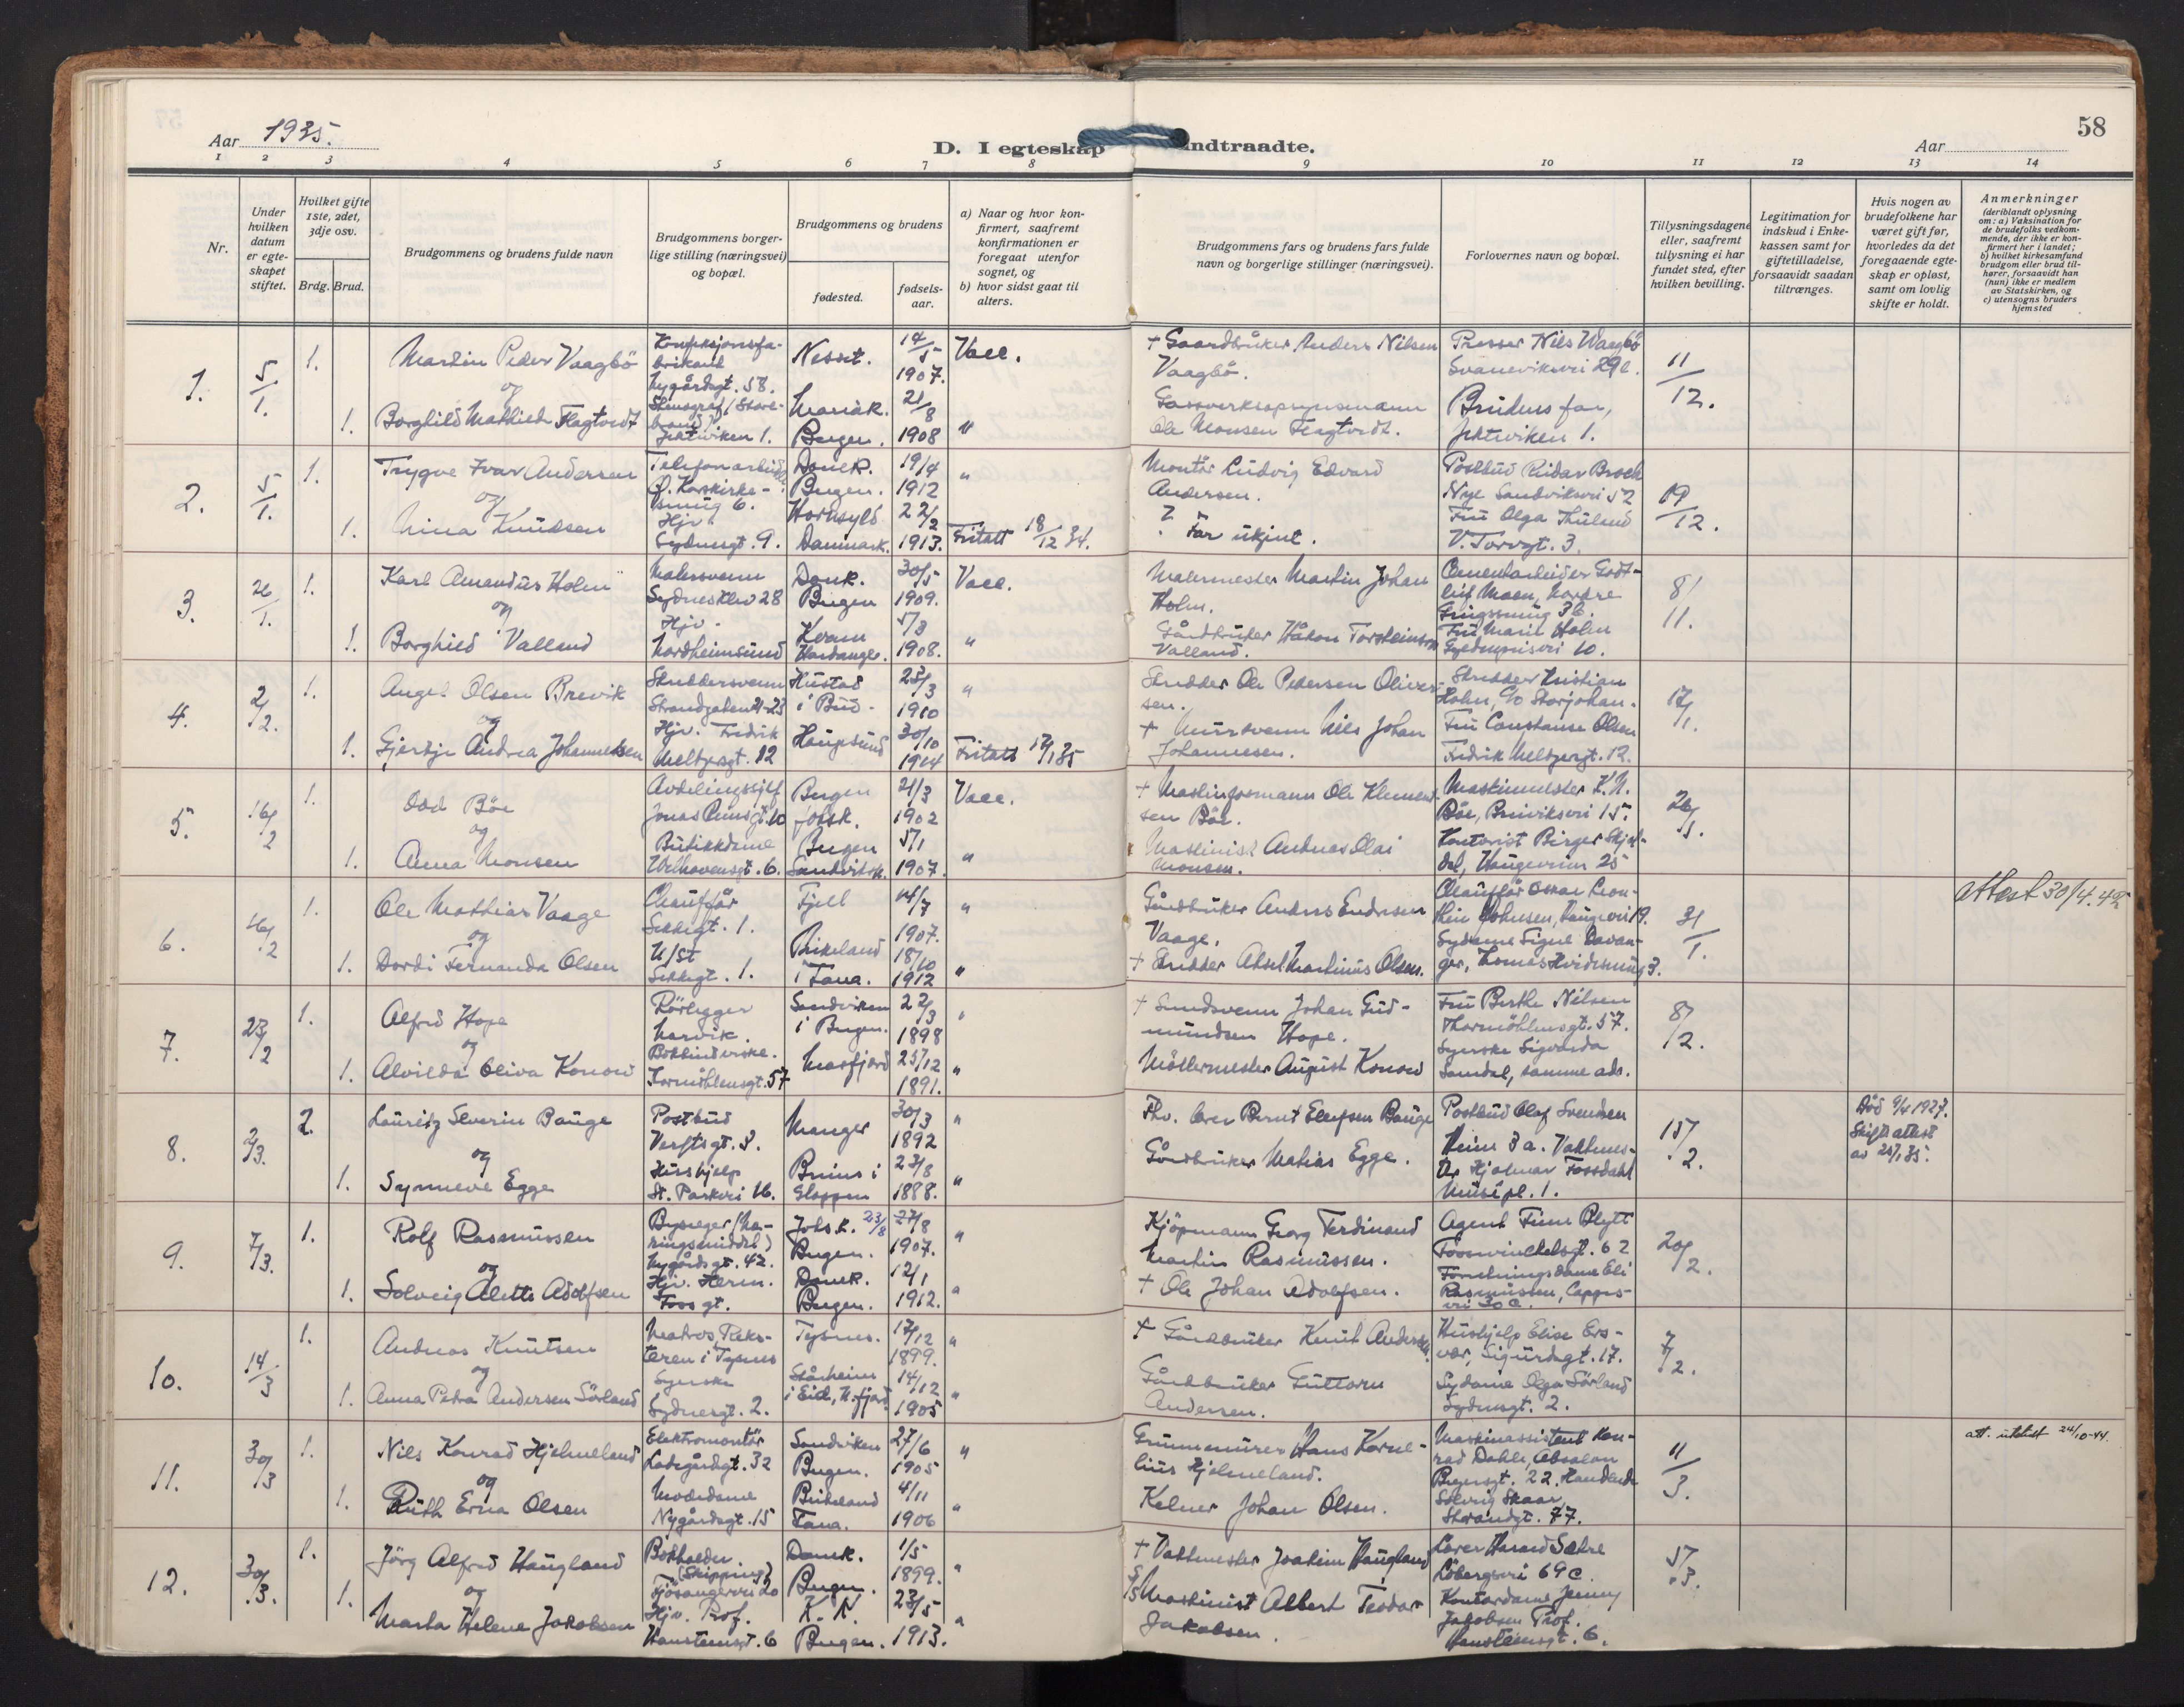 58
Aar 1935.
D. I egteskap indtraadte.
Aar
1 2 3 4 5 6 7 8 9 10 11 12 13 14
Nr.
Under hvilken datum er egteskapet stiftet.
Hvilket gifte 1ste, 2det, 3dje osv.
Brdg. Brud.
Brudgommens og brudens fulde navn
Brudgommens borgerlige stilling (næringsvei) og bopæl.
Brudgommens og brudens
fødested.
fødselsaar.
a) Naar og hvor konfirmert, saafremt konfirmationen er foregaat utenfor sognet, og
b) hvor sidst gaat til alters.
Brudgommens fars og brudens fars fulde navn og borgerlige stillinger (næringsvei).
Forlovernes navn og bopæl.
Tillysningsdagene eller, saafremt tillysning ei har fundet sted, efter hvilken bevilling.
Legitimation for indskud i Enkekassen samt for giftetilladelse, forsaavidt saadan tiltrænges.
Hvis nogen av brudefolkene har været gift før, hvorledes da det foregaaende egteskap er opløst, samt om lovlig skifte er holdt.
Anmerkninger
(deriblandt oplysning om: a) Vaksination for de brudefolks vedkommende, der ikke er konfirmert her i landet;
b) hvilket kirkesamfund brudgom eller brud tilhører, forsaavidt han (hun) ikke er medlem av Statskirken, og
c) utensogns bruders hjemsted
1. 5/1. 1. Martin Peder Vaagbö
og
1. Borghild Mathilde Flagtvedt
Nygårdsgt. 58.
Jektviken 1.
Nesset. 14/5 1907. Vacc.
Mariak. Bergen. 21/8 1908 "
+ Gaardbruker Anders Nilsen Vaagbö.
Ole Monsen Flagtvedt.
Presser Nils Waagbö
Svaneviksvei 29 c.
Brudens far,
Jektviken 1.
11/12.
2. 5/1. 1. Trygve Ivar Andersen
og
1. Nina Knudsen
Hjv.
Sydnesgt. 9.
Domk. Bergen. 19/4 1912 "
Danmark. 22/2 1913. Fritatt 18/12 34.
Montör Ludvig Edvard Andersen.
? Far ukjent.
Postbud Reidar Broch
Nye Sandviksvei 52
Fru Olga Thuland
V. Torvgt. 3.
19/12.
3. 26/1. 1. Karl Amandus Holm
og
1. Borghild Valland
Malersvenn
Sydneskleiv 28
Hjv.
Nordheimsund
Domk. Bergen 30/5 1909. Vacc.
Kvam Hardanger. 5/3 1908. "
Malermester Martin Johan Holm.
Gårdbruker Håkon Torsteinson Valland.
Fru Marie Holm
8/11.
4. 2/2. 1. Angel Olsen Brevik
og
1. Gjertje Andrea Johannessen
Skreddersvenn
Strandgaten 21-23
Hjv. Fredrik
Meltzersgt. 12
Hustad i Bud. 23/3 1910 "
Haugesund 30/10 1914 Fritatt 17/1 35
Skredder Ole Pedersen Oliversen.
+ Murersvenn Nils Johan Johannesen.
Skredder Kristian
Fru Constanse Olsen
Fredrik Meltzersgt. 12.
17/1.
5. 16/2 1. Odd Böe
og
1. Anna Monsen
Avdelingssjef
Jonas Reinsgt. 10
Butikkdame
Welhavensgt. 6.
Bergen Johsk. 21/3 1902 Vacc.
Bergen Sandvikk. 5/1 1907. "
Maskinist Andreas Olai Monsen.
Maskinmester K. N.
Kontorist Birger
26/1.
6. 16/2 1. Ole Mathias Vaage
og
1. Dordi Fernanda Olsen
Chauffør
Sekkegt. 1.
U/St
Sekkegt. 1.
Fjell 14/7 1907. "
Birkeland i Fana. 18/10 1912 "
Gårdbruker Anders Endresen Vaage.
+ Skredder Aksel Martinius Olsen.
Sydame Signe Davanger,
31/1.
attest 30/4. 42
7. 23/2 1. Alfred Hope
og
1. Alvilda Oliva Konow
Rörlegger
Narvik.
Bokbinderske.
Thormöhlensgt. 57
Sandviken i Bergen. 22/3 1898 "
Masfjord 25/12 1891. "
+ Smedsvenn Johan Gudmundsen Hope.
Möllermester August Konow
Fru Berthe Nilsen
Thormöhlensgt. 57.
Syerske Sigvarda
Samdal, samme ads.
8/2.
8. 2/3. 2. Lauritz Severin Bauge
og
1. Synneve Egge
Postbud
Verftsgt. 3.
Hushjelp
St. Parkvei 16.
Manger 30/3 1892 "
Breim i Gloppen 23/8 1888. "
Fhv. lærer Bernt Elefsen Bauge
Gårdbruker Matias Egge.
Postbud Olaf Svendsen
Hjalmar Fossdahl
Musépl. 1.
15/2.
Död 9/4 1927.
Skifteattest
av 25/1 35.
9. 7/3. 1. Rolf Rasmussen
og
1. Solveig Alette Adolfsen
Nygårdsgt. 42.
Hjv. Herm.
Fossgt.
Johs k. Bergen. 23/8 27/8 1907. "
Domk. Bergen. 12/1 1912. "
Kjöpmann Georg Ferdinand
Martin Rasmussen.
+ Ole Johan Adolfsen.
Agent Finn Blytt
Fosswinckelsgt. 62
Forretningsdame Eli
Rasmussen, Cappesvei 30 a.
20/2.
10. 14/3 1. Andreas Knutsen
og
1. Anna Petra Andersen Sörland
Matros, Reksteren i Tysnes
Syerske
Sydnesgt. 2.
Tysnes. 17/12 1899. "
Stårheim i Eid, N.fjord 14/12 1905 "
+ Gårdbruker Knut Andersen.
Gårdbruker Guttorm Andersen.
Hushjelp Elise
Sigurdsgt. 17.
Sydame Olga Sörland
Sydnesgt. 2.
7/2.
11. 30/3 1. Nils Konrad Hjelmeland
og
1. Ruth Erna Olsen
Elektromontör
Ladegårdsgt. 32
Nygårdsgt. 15
Sandviken Bergen. 27/6 1905 "
Birkeland Fana. 4/11 1906 "
Grunnmurer Hans Kornelius Hjelmeland.
Kelner Johan Olsen.
Maskinassistent Konrad Dahle, Absalon
Beyersgt. 22.
Solveig Skaar,
Strandgt. 77.
11/3.
att. utstedt 24/10-44.
12. 30/3. 1. Jörg Alfred Haugland
og
1. Marta Helene Jakobsen
Bokholder.
(Skipping)
Fjösangervei 20
Hjv. Prof.
Hansteensgt. 6
Domk. Bergen. 1/5 1899. "
K. K. Bergen. 23/5 1913. "
+ Vaktmester Joakim Haugland
Maskinist Albert Teodor Jakobsen.
Lærer Harald Sætre
Löbergsvei 69 c.
Kontordame Jenny
Jakobsen Prof.
Hansteensgt. 6.
5/3.